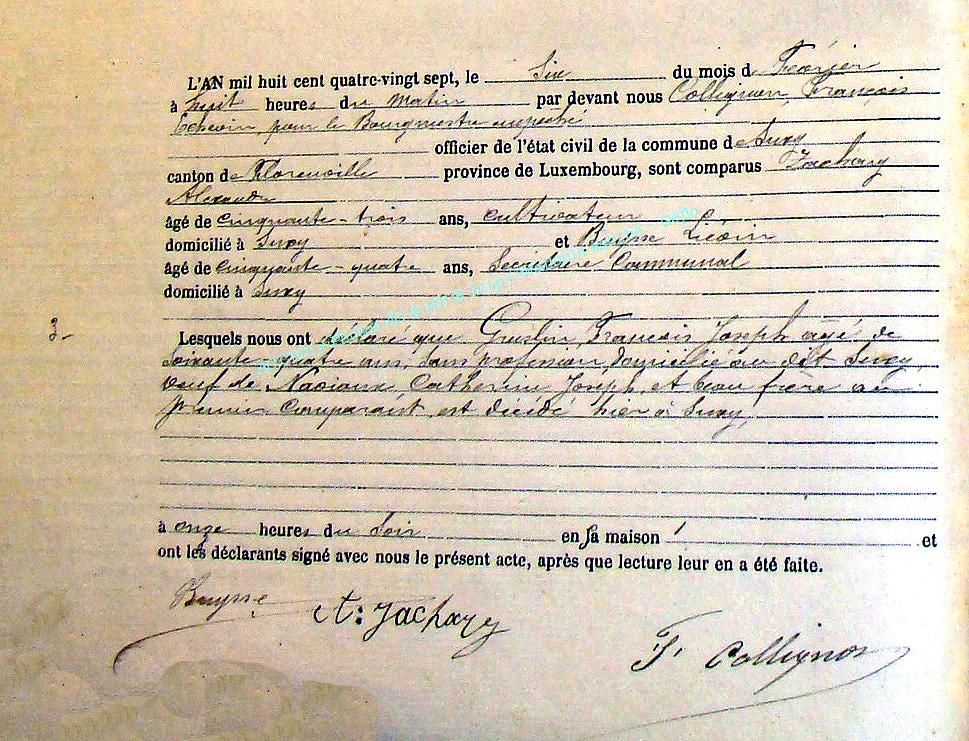 L'AN mil huit cent quatre-vingt sept, le Six du mois d Février
à huit heures du matin par devant nous Collignon, François
Echevin, pour le Bourgmestre empêché
officier de l'état civil de la commune de Suxy
canton de Florenville province de Luxembourg, sont comparus Zachary
Alexandre
âgé de cinquante-trois ans, cultivateur
domicilié à Suxy et Buysse
âgé de cinquante-quatre ans, Secrétaire Communal
domicilié à Suxy
3-
Lesquels nous ont déclaré que François Joseph âgé de
soixante-quatre ans, sans profession, domicilié au dit Suxy,
veuf de Catherine Joseph, et beau frère au
premier comparant, est décédé hier à Suxy,
à onze heures du soir en sa maison et
ont les déclarants signé avec nous le présent acte, après que lecture leur en a été faite.
Buysse
A: Zachary
F. Collignon